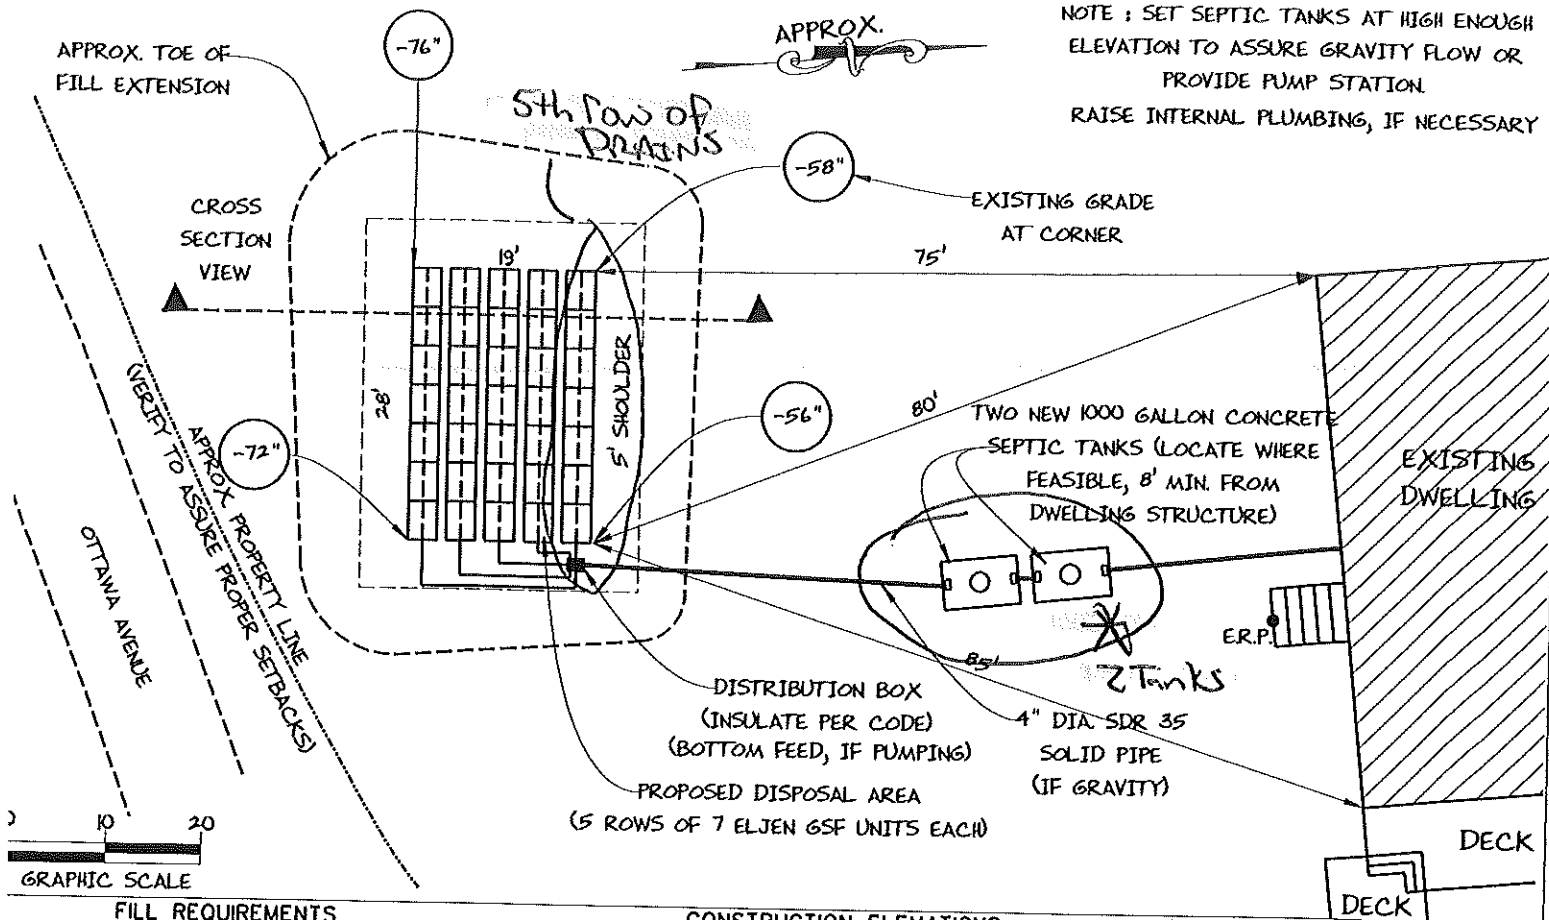 APPROX.
NOTE : SET SEPTIC TANKS AT HIGH ENOUGH
ELEVATION TO ASSURE GRAVITY FLOW OR
PROVIDE PUMP STATION.
RAISE INTERNAL PLUMBING, IF NECESSARY
APPROX. TOE OF
FILL EXTENSION
-76"
5th row of
DRAINS
-58"
EXISTING GRADE
AT CORNER
CROSS
SECTION
VIEW
19'
75'
28'
5' SHOULDER
-56"
80'
-72"
TWO NEW 1000 GALLON CONCRETE
SEPTIC TANKS (LOCATE WHERE
FEASIBLE, 8' MIN. FROM
DWELLING STRUCTURE)
EXISTING
DWELLING
APPROX. PROPERTY LINE
(VERIFY TO ASSURE PROPER SETBACKS)
OTTAWA AVENUE
E.R.P.
85'
2 Tanks
DISTRIBUTION BOX
(INSULATE PER CODE)
(BOTTOM FEED, IF PUMPING)
4" DIA. SDR 35
SOLID PIPE
(IF GRAVITY)
PROPOSED DISPOSAL AREA
(5 ROWS OF 7 ELJEN GSF UNITS EACH)
10 20
GRAPHIC SCALE
DECK
DECK
FILL REQUIREMENTS
CONSTRUCTION ELEVATIONS